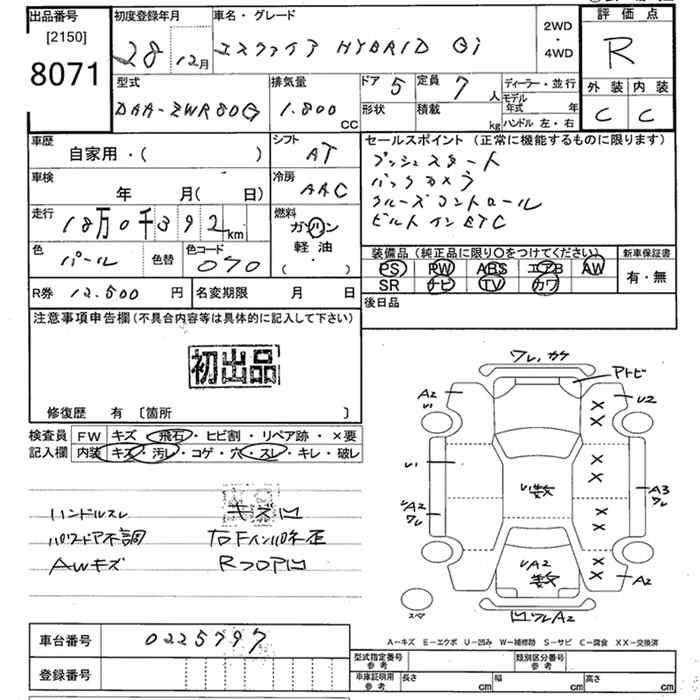 出品番号
[2150]
8071
初度登録年月
28 12月
車名・グレード
エスクァイア HYBRID Gi
2WD
・
4WD
評価点
R
外装 内装
C C
型式
DAA-ZWR80G
排気量
1.800
cc
ドア 5
定員 7 人
形状
積載
kg
ディーラー・並行
モデル
年式 年
ハンドル 左・右
車歴
自家用・( )
シフト
AT
車検
年 月( 日)
冷房
AAC
走行
18万0千392km
燃料
ガソリン
軽油
( ・ )
色
パール
色替
色コード
070
R券 12.500 円
名変期限 月 日
セールスポイント(正常に機能するものに限ります)
プッシュスタート
バックカメラ
クルーズコントロール
ビルトインETC
装備品(純正品に限り○をつけてください)
PS PW ABS エアB AW
SR ナビ TV カワ
新車保証書
有・無
後日品
注意事項申告欄(不具合内容等は具体的に記入して下さい)
初出品
修復歴 有 〔箇所 〕
検査員
記入欄
FW キズ・飛石・ヒビ割・リペア跡・×要
内装 キズ・汚レ・コゲ・穴・スレ・キレ・破レ
ハンドルスレ
パワードア不調
AWキズ
キズ凹
Rフロア凹
ワレ,カケ
アトビ
A2
U1
U2
U1
UA2
ワレ
U1数
A3
ワレ
UA2
数
A2
凹ワレA2
スペア
A-キズ E-エクボ U-凹み W-補修跡 S-サビ C-腐食 XX-交換済
車台番号 0225797
登録番号
型式指定番号
参考
類別区分番号
参考
車庫証明用
参考
長さ cm
幅 cm
高さ cm